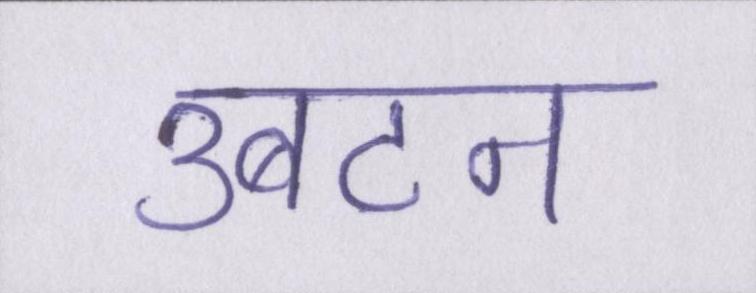 उबटन